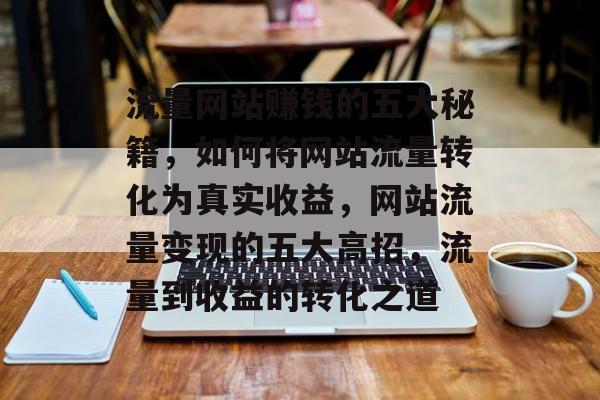 流量网站赚钱的五大秘
籍，如何将网站流量转
化为真实收益，网站流
量变现的五大高招，流
量到收益的转化之道